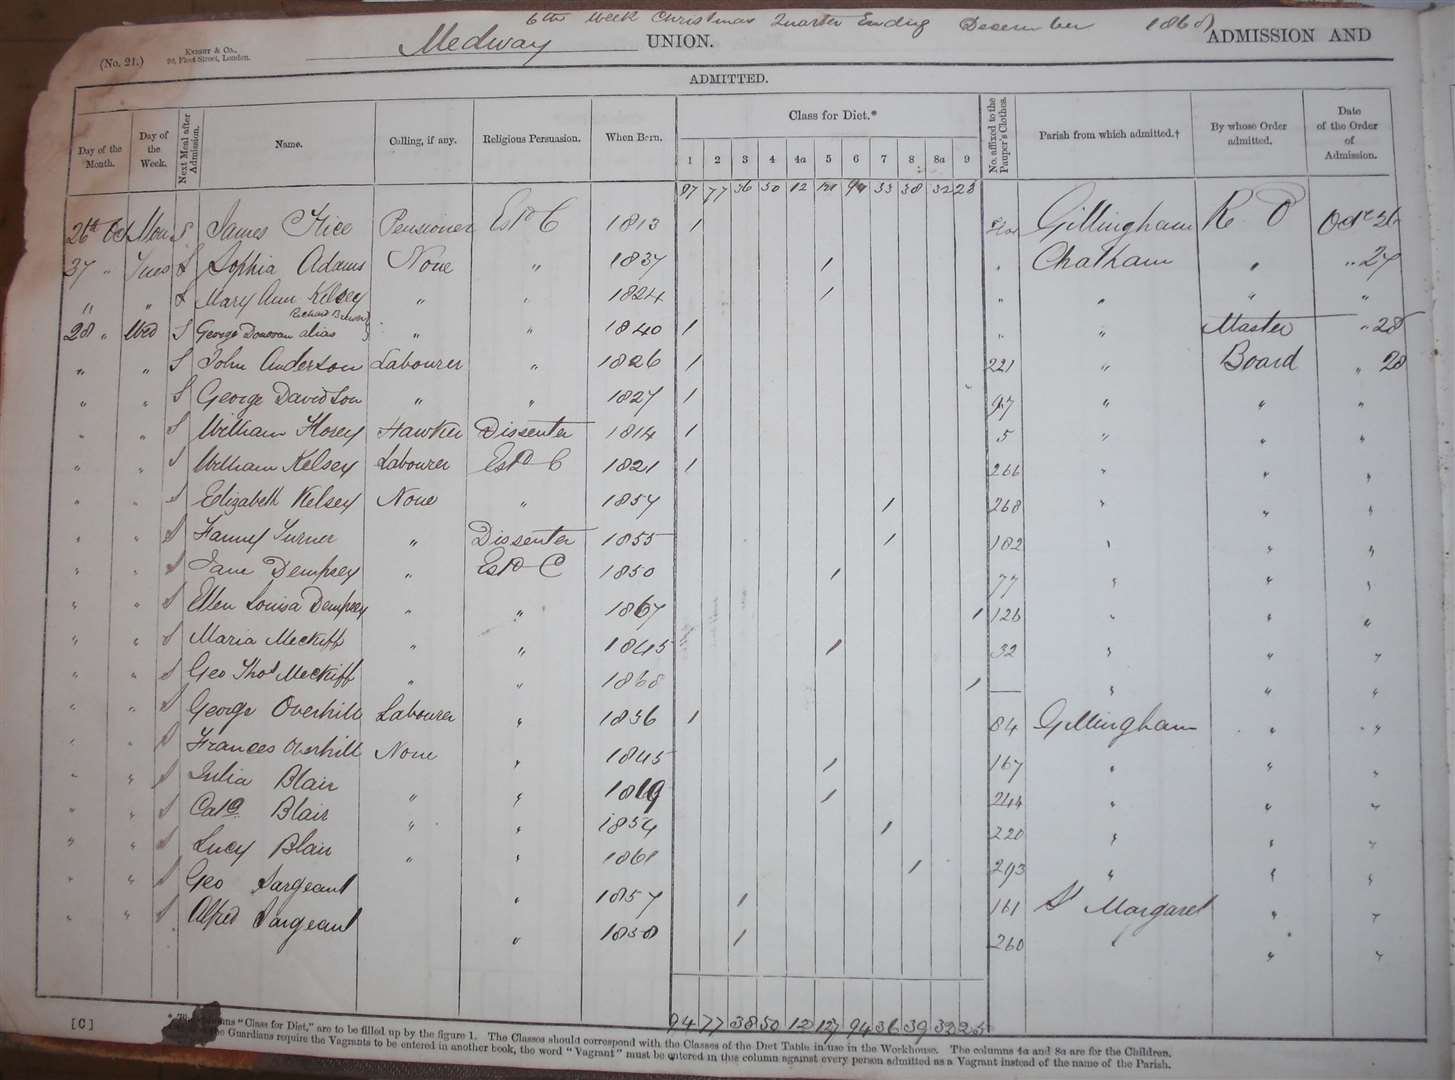 6th Week Christmas Quarter Ending December 1868
(No. 21.) Knight & Co., 90, Fleet Street, London. Medway UNION. ADMISSION AND
ADMITTED.
Day of the Month. Day of the Week. Next Meal after Admission. Name. Calling, if any. Religious Persuasion. When Born. Class for Diet.* No. affixed to the Pauper's Clothes. Parish from which admitted.† By whose Order admitted. Date of the Order of Admission.
1 2 3 4 4a 5 6 7 8 8a 9
87 77 36 50 12 121 94 33 38 32 23
26th Oct Mon S James Hice Pensioner Estd C 1813 1 Gillingham R O Octr 26
27 " Tues S Sophia Adams None " 1837 1 " Chatham " " 27
" " S Mary Ann Kelsey " " 1824 1 " " " "
Richard Brewer
28 " Wed S George Donovan alias " " 1840 1 " " Master " 28
" " S John Anderson Labourer " 1826 1 221 " Board " 28
" " S George Davidson " " 1827 1 97 " " "
" " S William Hosey Hawker Dissenter 1814 1 5 " " "
" " S William Kelsey Labourer Estd C 1821 1 266 " " "
" " S Elizabeth Kelsey None " 1857 1 268 " " "
" " S Fanny Turner " Dissenter 1855 1 182 " " "
" " S Jane Dempsey " Estd C 1850 1 77 " " "
" " S Ellen Louisa Dempsey " " 1867 1 126 " " "
" " S Maria Meckiff " " 1845 1 32 " " "
" " S Geo Thos Meckiff " " 1868 1 — " " "
" " S George Overhill Labourer " 1836 1 84 Gillingham " "
" " S Frances Overhill None " 1845 1 167 " " "
" " S Julia Blair " " 1819 1 244 " " "
" " S Cathe Blair " " 1854 1 220 " " "
" " S Lucy Blair " " 1861 1 293 " " "
" " S Geo Sargeant " 1857 1 161 St Margaret " "
" " S Alfred Sargeant " 1858 1 260 " " "
94 77 38 50 12 127 94 36 39 32 25
[C] "Class for Diet," are to be filled up by the figure 1. The Classes should correspond with the Classes of the Diet Table in use in the Workhouse. The columns 4a and 8a are for the Children.
the Guardians require the Vagrants to be entered in another book, the word "Vagrant" must be entered in this column against every person admitted as a Vagrant instead of the name of the Parish.